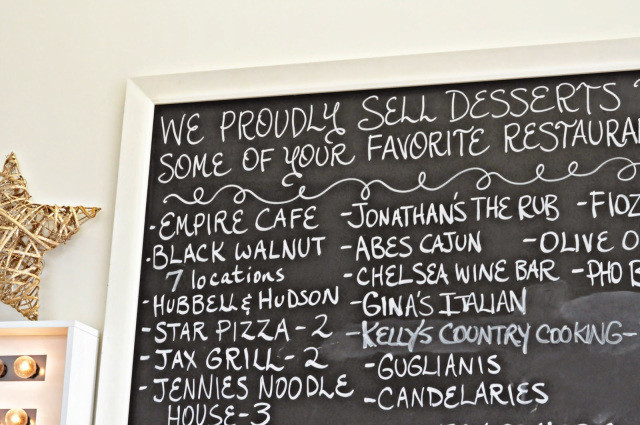 WE PROUDLY SELL DESSERTS
SOME OF YOUR FAVORITE
-EMPIRE CAFE
-BLACK WALNUT
7 locations
-HUBBELL & HUDSON
-STAR PIZZA-2
-JAX GRILL-2
-JENNIES NOODLE
HOUSE-3
-JONATHAN'S THE RUB
-ABES CAJUN
-CHELSEA WINE BAR
-GINA'S ITALIAN
-KELLY'S COUNTRY COOKING-
-GUGLIANIS
-CANDELARIES
-OLIVE
-PHO